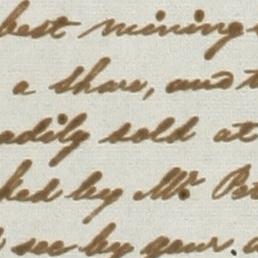 best mining
a share, and t
adily sold at
ked by Mr. Pet
see by your